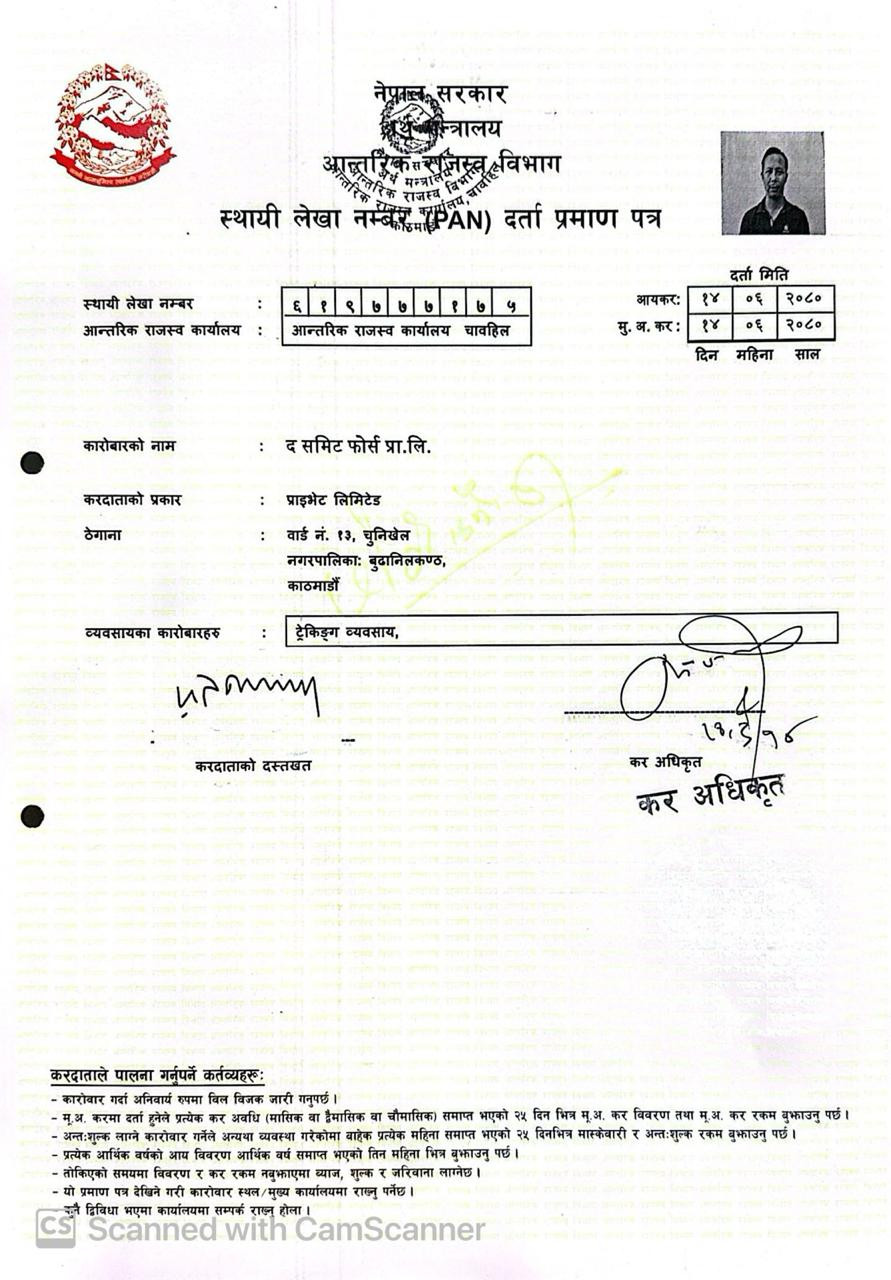 नेपाल सरकार
अर्थ मन्त्रालय
आन्तरिक राजस्व विभाग
स्थायी लेखा नम्बर (PAN) दर्ता प्रमाण पत्र
अर्थ मन्त्रालय
आन्तरिक राजस्व विभाग
आन्तरिक राजस्व कार्यालय, चावहिल
काठमाडौं
दर्ता मिति
स्थायी लेखा नम्बर : ६ १ ९ ७ ७ ७ १ ७ ५
आयकर: १४ ०६ २०८०
आन्तरिक राजस्व कार्यालय : आन्तरिक राजस्व कार्यालय चावहिल
मु. अ. कर : १४ ०६ २०८०
दिन महिना साल
कारोबारको नाम : द समिट फोर्स प्रा.लि.
करदाताको प्रकार : प्राइभेट लिमिटेड
ठेगाना : वार्ड नं. १३, चुनिखेल
नगरपालिका: बुढानिलकण्ठ,
काठमाडौं
व्यवसायका कारोबारहरु : ट्रेकिङ्ग व्यवसाय,
करदाताको दस्तखत
कर अधिकृत
कर अधिकृत
करदाताले पालना गर्नुपर्ने कर्तव्यहरू:
- कारोवार गर्दा अनिवार्य रुपमा विल विजक जारी गनुपर्छ ।
- मू.अ. करमा दर्ता हुनेले प्रत्येक कर अवधि (मासिक वा द्वैमासिक वा चौमासिक) समाप्त भएको २५ दिन भित्र मू.अ. कर विवरण तथा मू.अ. कर रकम बुझाउनु पर्छ ।
- अन्तःशुल्क लाग्ने कारोवार गर्नेले अन्यथा व्यवस्था गरेकोमा वाहेक प्रत्येक महिना समाप्त भएको २५ दिनभित्र मास्केवारी र अन्तःशुल्क रकम बुझाउनु पर्छ ।
- प्रत्येक आर्थिक वर्षको आय विवरण आर्थिक वर्ष समाप्त भएको तिन महिना भित्र बुझाउनु पर्छ ।
- तोकिएको समयमा विवरण र कर रकम नबुझाएमा व्याज, शुल्क र जरिवाना लाग्नेछ ।
- यो प्रमाण पत्र देखिने गरी कारोवार स्थल/मुख्य कार्यालयमा राख्नु पर्नेछ ।
द्विविधा भएमा कार्यालयमा सम्पर्क राख्नु होला ।
CS Scanned with CamScanner